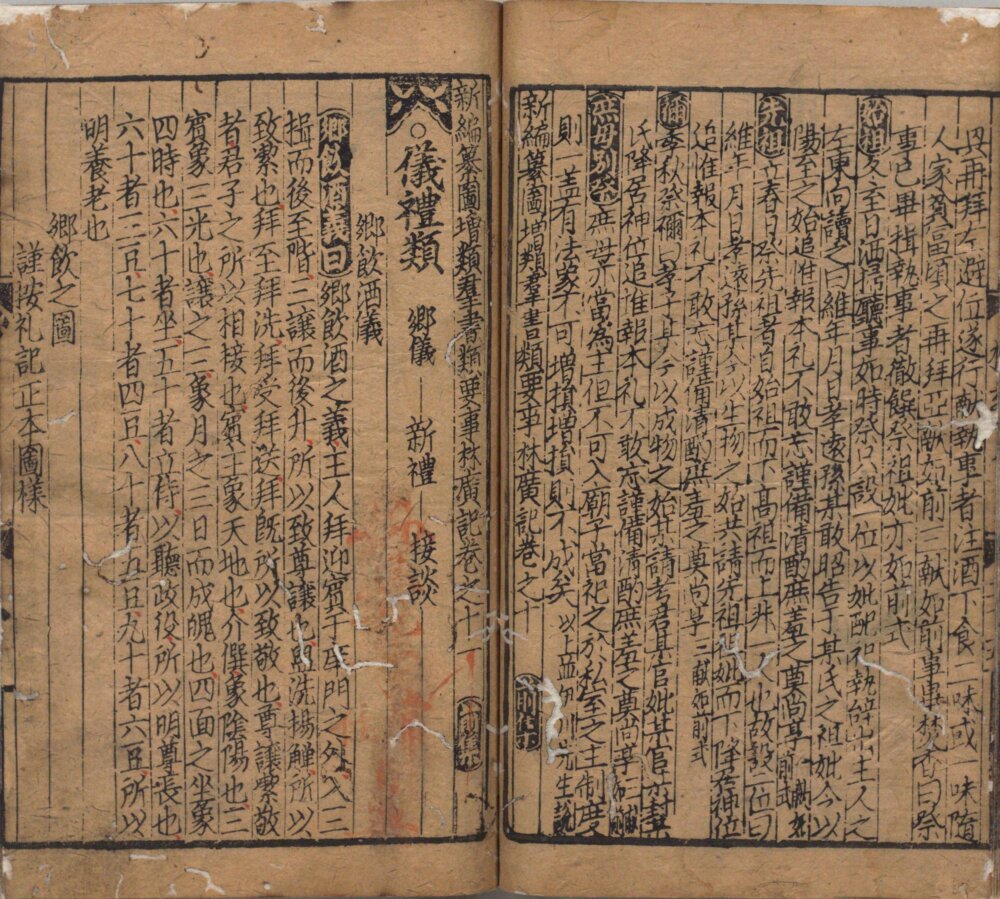 再拜左避位遂行献執事者注酒下食一味或二味隨
人家貧富頃之再拜亞献如前三献如前事畢焚香曰祭
事已畢揖執事者徹饌祭祖妣亦如前式
始祖冬至日洒掃廳事如時祭只設一位以妣配祀執辝㞢主人之
左東向讀之曰維年月日孝遠孫某敢昭告于某氏之祖妣今以
陽至之始追惟報本礼不敢忘謹備清酌庶羞之奠尚享三献如前式
先祖立春日祭先祖者自始祖而下髙祖而上非一人也故設二位曰
維年月日孝遠孫某今以生物之始共請先祖祖妣而下降居神位
追惟報本礼不敢忘謹備清酌庶羞之奠尚享三献如前式
禰季秋祭禰曰孝子某今以成物之始共請考君某官妣某官某封某
氏降居神位追惟報本礼不敢忘謹備清酌庶羞之奠尚享三献
庶母別祭庶母亦當為主但不可入廟子當祀之於私室主之制度
則一盖有法象不可增損增損則不成矣以上並伊川先生說
新編纂圖增類羣書類要事林廣記卷之十
新編纂圖增類羣書類要事林廣記卷之十一
儀禮類 鄉儀 新禮 接談
鄉飲酒儀
鄉飲酒義曰鄉飲酒之義主人拜迎賓于庠門之外入三
揖而後至階三讓而後升所以致尊讓也盥洗揚觶所以
致潔也拜至拜洗拜受拜送拜旣所以致敬也尊讓潔敬
者君子之所以相接也賓主象天地也介僎象陰陽也三
賓象三光也讓之三象月之三日而成魄也四面之坐象
四時也六十者坐五十者立侍以聽政役所以明尊長也
六十者三豆七十者四豆八十者五豆九十者六豆所以
明養老也
鄉飲之圖
謹按礼記正本圖様